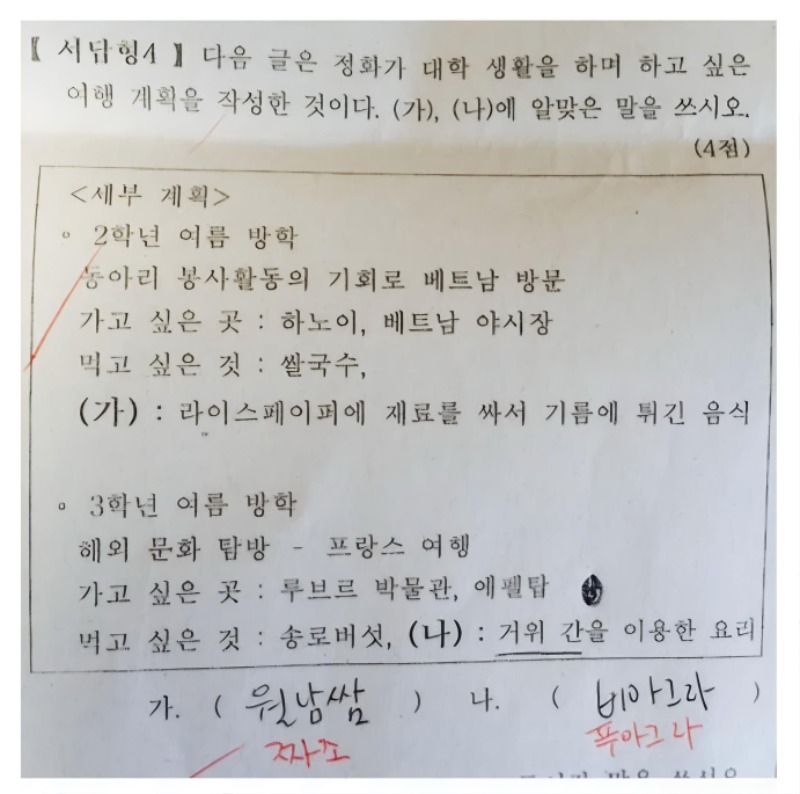 【 서답형4 】 다음 글은 정화가 대학 생활을 하며 하고 싶은
여행 계획을 작성한 것이다. (가), (나)에 알맞은 말을 쓰시오.
(4점)
<세부 계획>
◦ 2학년 여름 방학
동아리 봉사활동의 기회로 베트남 방문
가고 싶은 곳 : 하노이, 베트남 야시장
먹고 싶은 것 : 쌀국수,
(가) : 라이스페이퍼에 재료를 싸서 기름에 튀긴 음식
◦ 3학년 여름 방학
해외 문화 탐방 - 프랑스 여행
가고 싶은 곳 : 루브르 박물관, 에펠탑
먹고 싶은 것 : 송로버섯, (나) : 거위 간을 이용한 요리
가. ( 월남쌈 ) 나. ( 비아그라 )
짜조 푸아그라